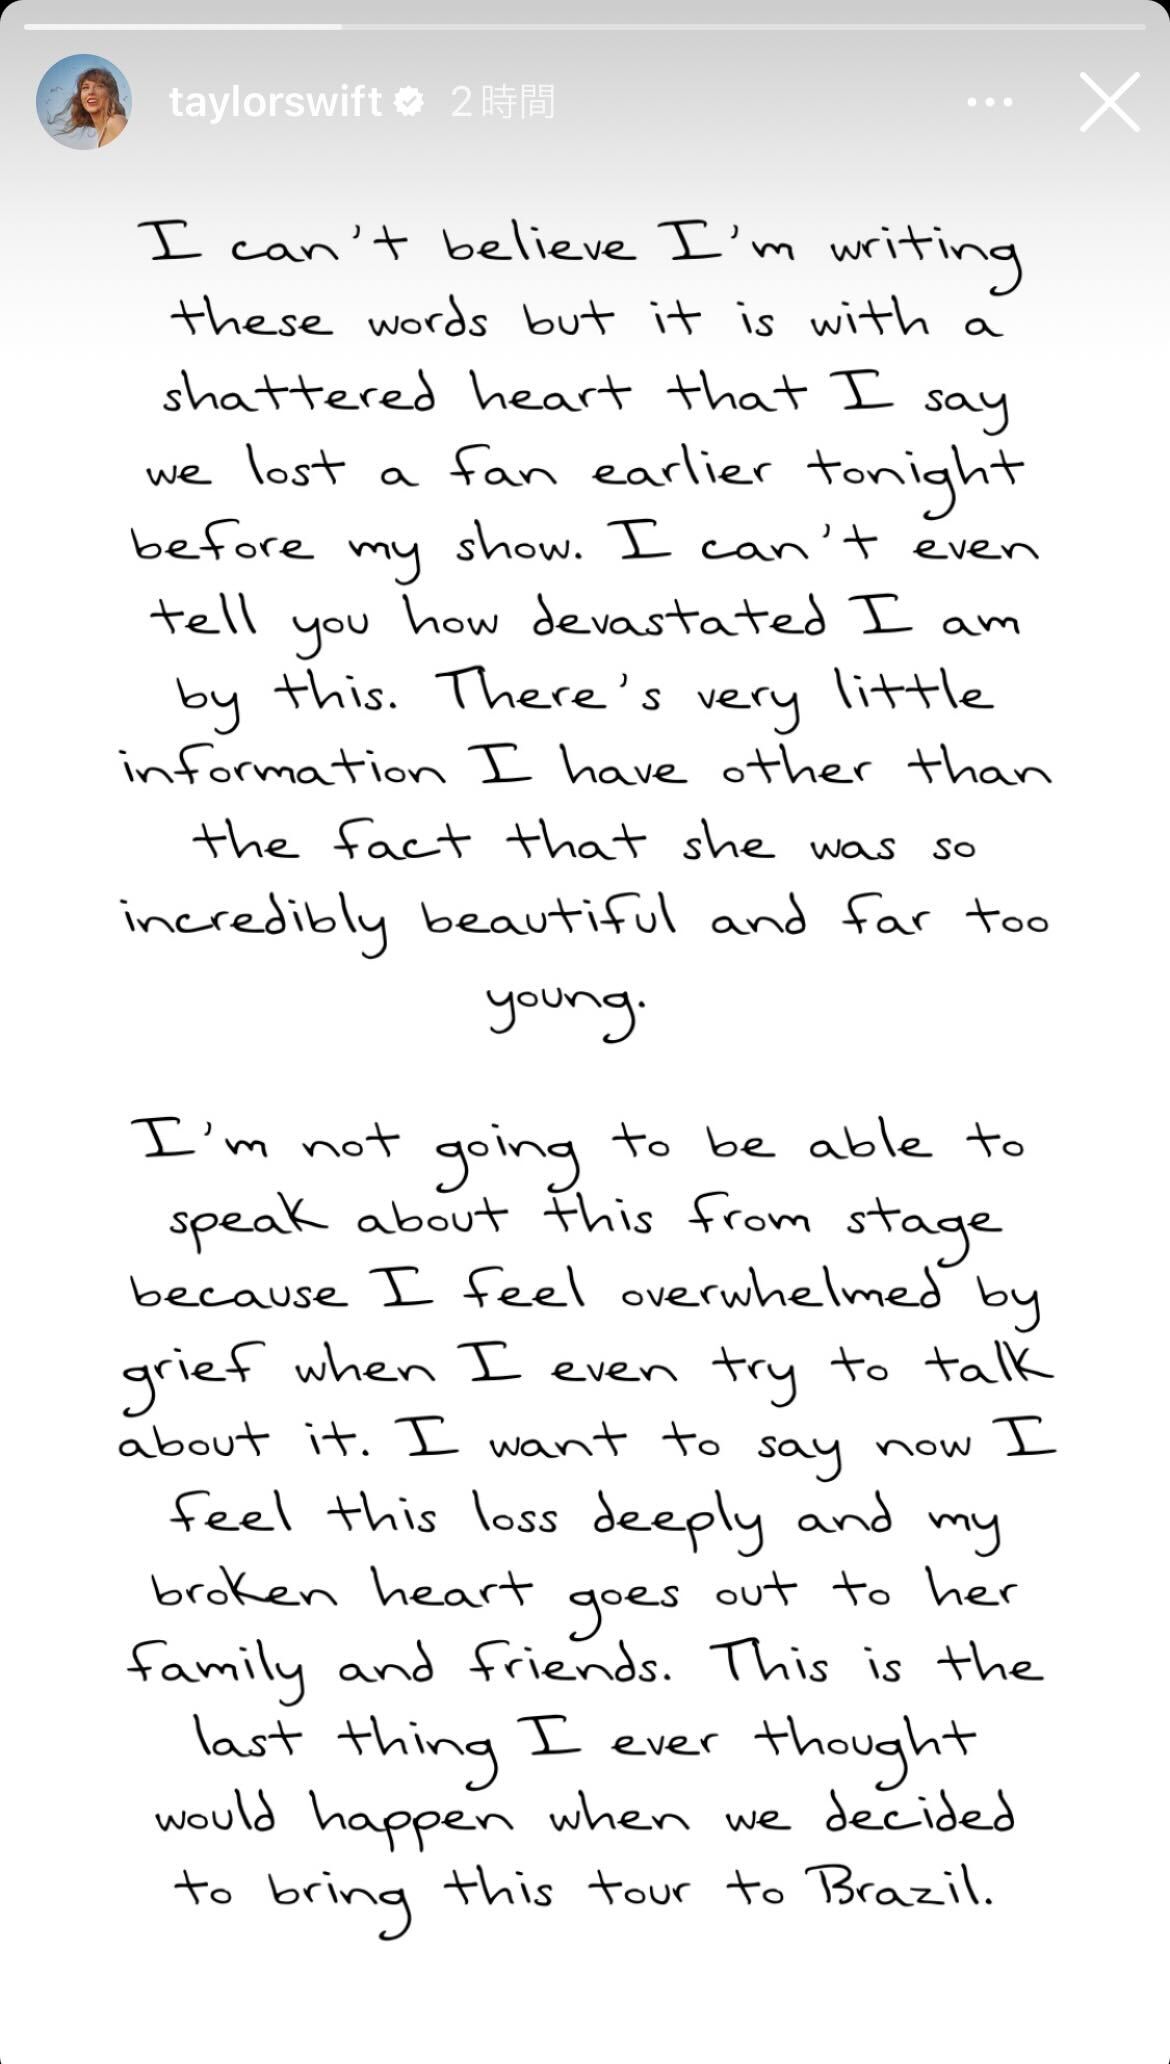 taylorswift 2時間
I can't believe I'm writing
these words but it is with a
shattered heart that I say
we lost a fan earlier tonight
before my show. I can't even
tell you how devastated I am
by this. There's very little
information I have other than
the fact that she was so
incredibly beautiful and far too
young.
I'm not going to be able to
speak about this from stage
because I feel overwhelmed by
grief when I even try to talk
about it. I want to say now I
feel this loss deeply and my
broken heart goes out to her
family and friends. This is the
last thing I ever thought
would happen when we decided
to bring this tour to Brazil.